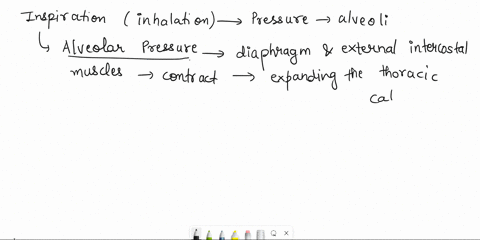 Inspiration (inhalation) → Pressure → alveoli
↳ Alveolar Pressure → diaphragm & external intercostal
muscles → contract → expanding the thoracic
cal